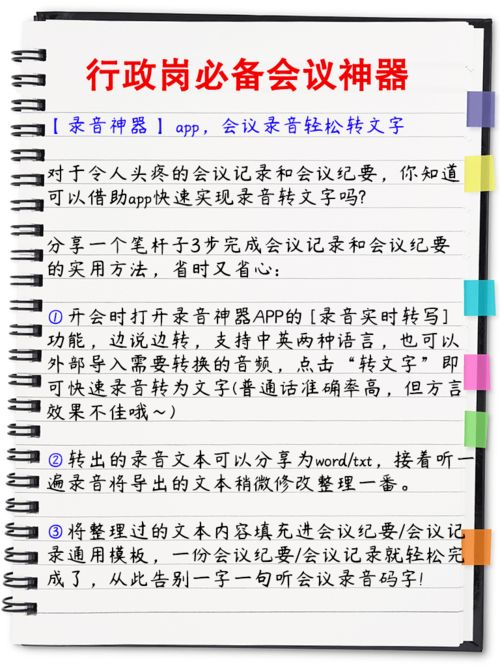 行政岗必备会议神器
【 录音神器 】 app，会议录音轻松转文字
对于令人头疼的会议记录和会议纪要，你知道
可以借助app快速实现录音转文字吗?
分享一个笔杆子3步完成会议记录和会议纪要
的实用方法，省时又省心：
① 开会时打开录音神器APP的 [录音实时转写]
功能，边说边转，支持中英两种语言，也可以
外部导入需要转换的音频，点击“转文字”即
可快速录音转为文字(普通话准确率高，但方言
效果不佳哦～)
② 转出的录音文本可以分享为word/txt，接着听一
遍录音将导出的文本稍微修改整理一番。
③ 将整理过的文本内容填充进会议纪要/会议记
录通用模板，一份会议纪要/会议记录就轻松完
成了，从此告别一字一句听会议录音码字!